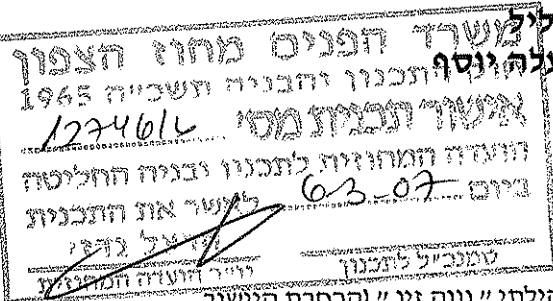 ליל
משרד הפנים מחוז הצפון
עלה יוסף
התכנון והבניה תשכ"ה 1965
אישור תכנית מס' 12746/ג
הועדה המחוזית לתכנון ובניה החליטה
ביום 6-3-07 לאשר את התכנית
סמנכ"ל לתכנון
יו"ר הועדה המחוזית
" נווה זיו " והרחבת היישוב